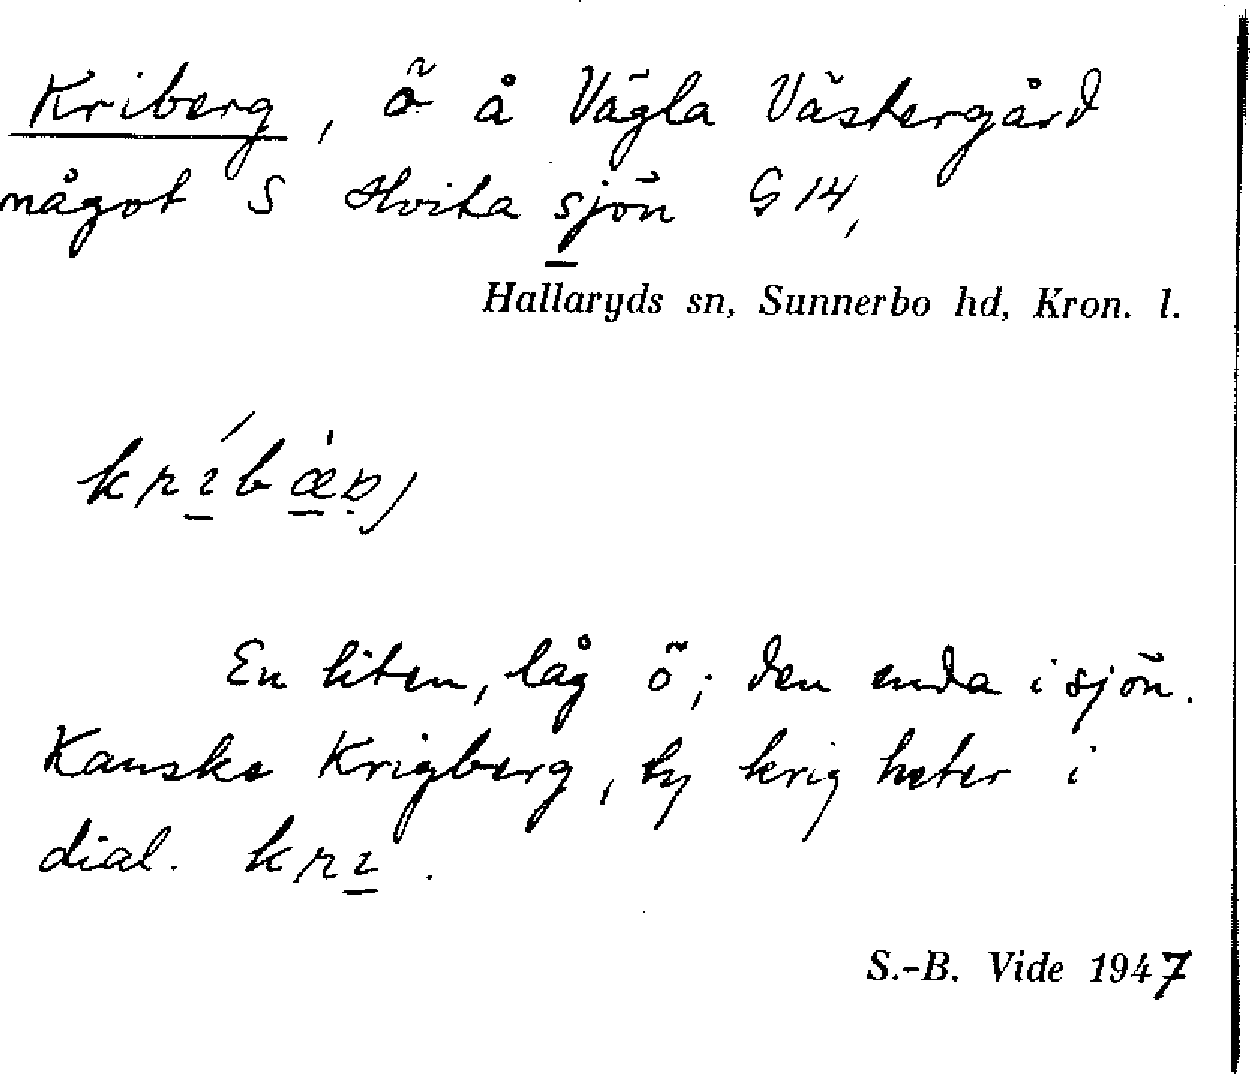 Kriberg, ö å Vägla Västergård
något S Hvita sjön G 14,
Hallaryds sn, Sunnerbo hd, Kron. l.
En liten, låg ö; den enda i sjön.
Kanske Krigberg, ty krig heter i
dial. krɪ.
S.-B. Vide 1947